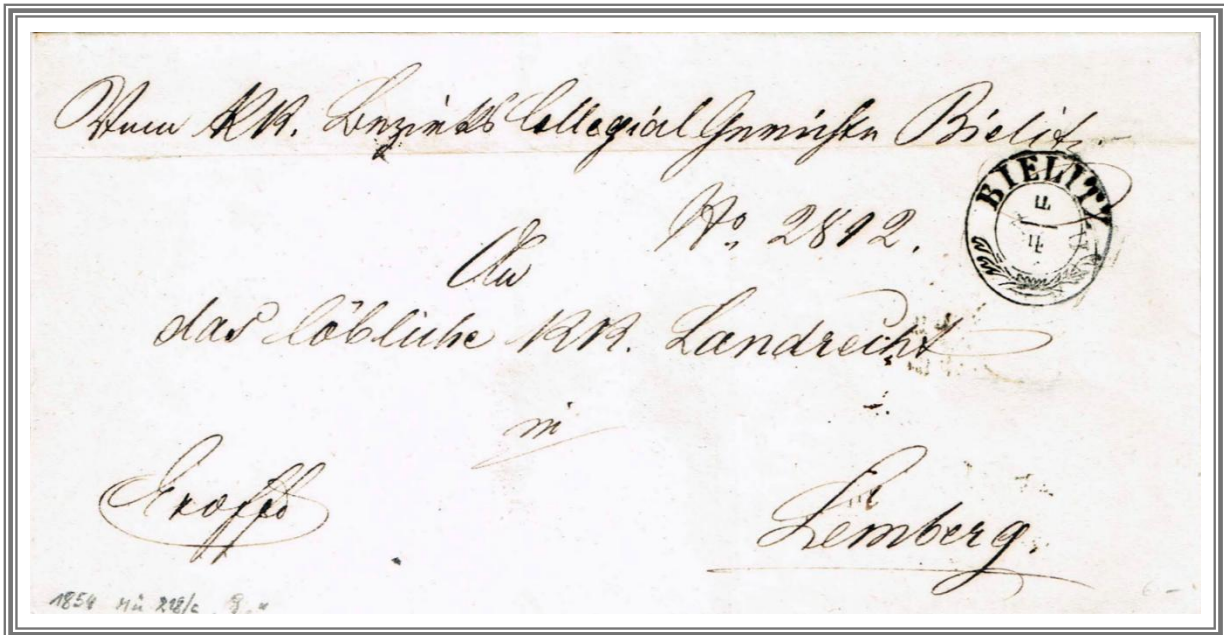 Vom KK. Bezirks Collegial Gerichte Bielitz.
BIELITZ
No. 2812.
An
das löbliche KK. Landrecht
in
Lemberg.
1854 Mü 218/c
6-